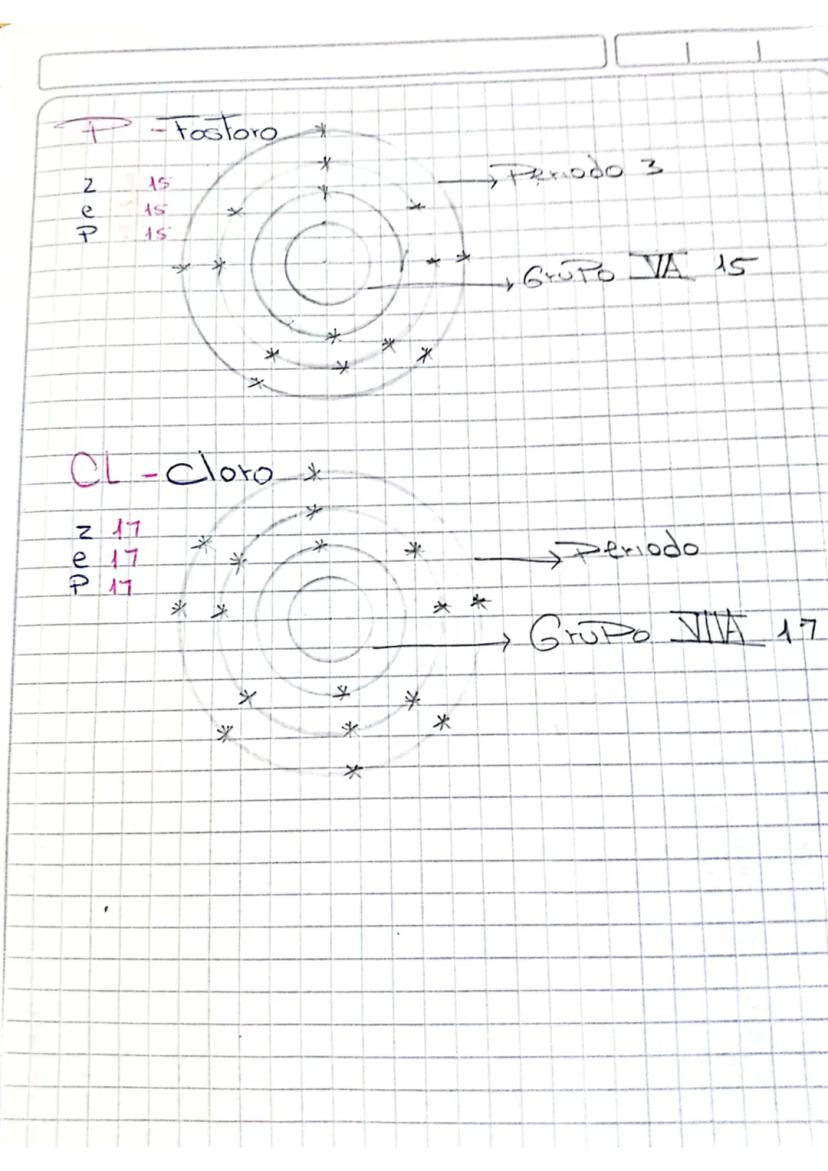 P - Fosforo
z 15
e 15
P 15
Periodo 3
Grupo VA 15
CL - Cloro
z 17
e 17
P 17
Periodo
Grupo VIIA 17